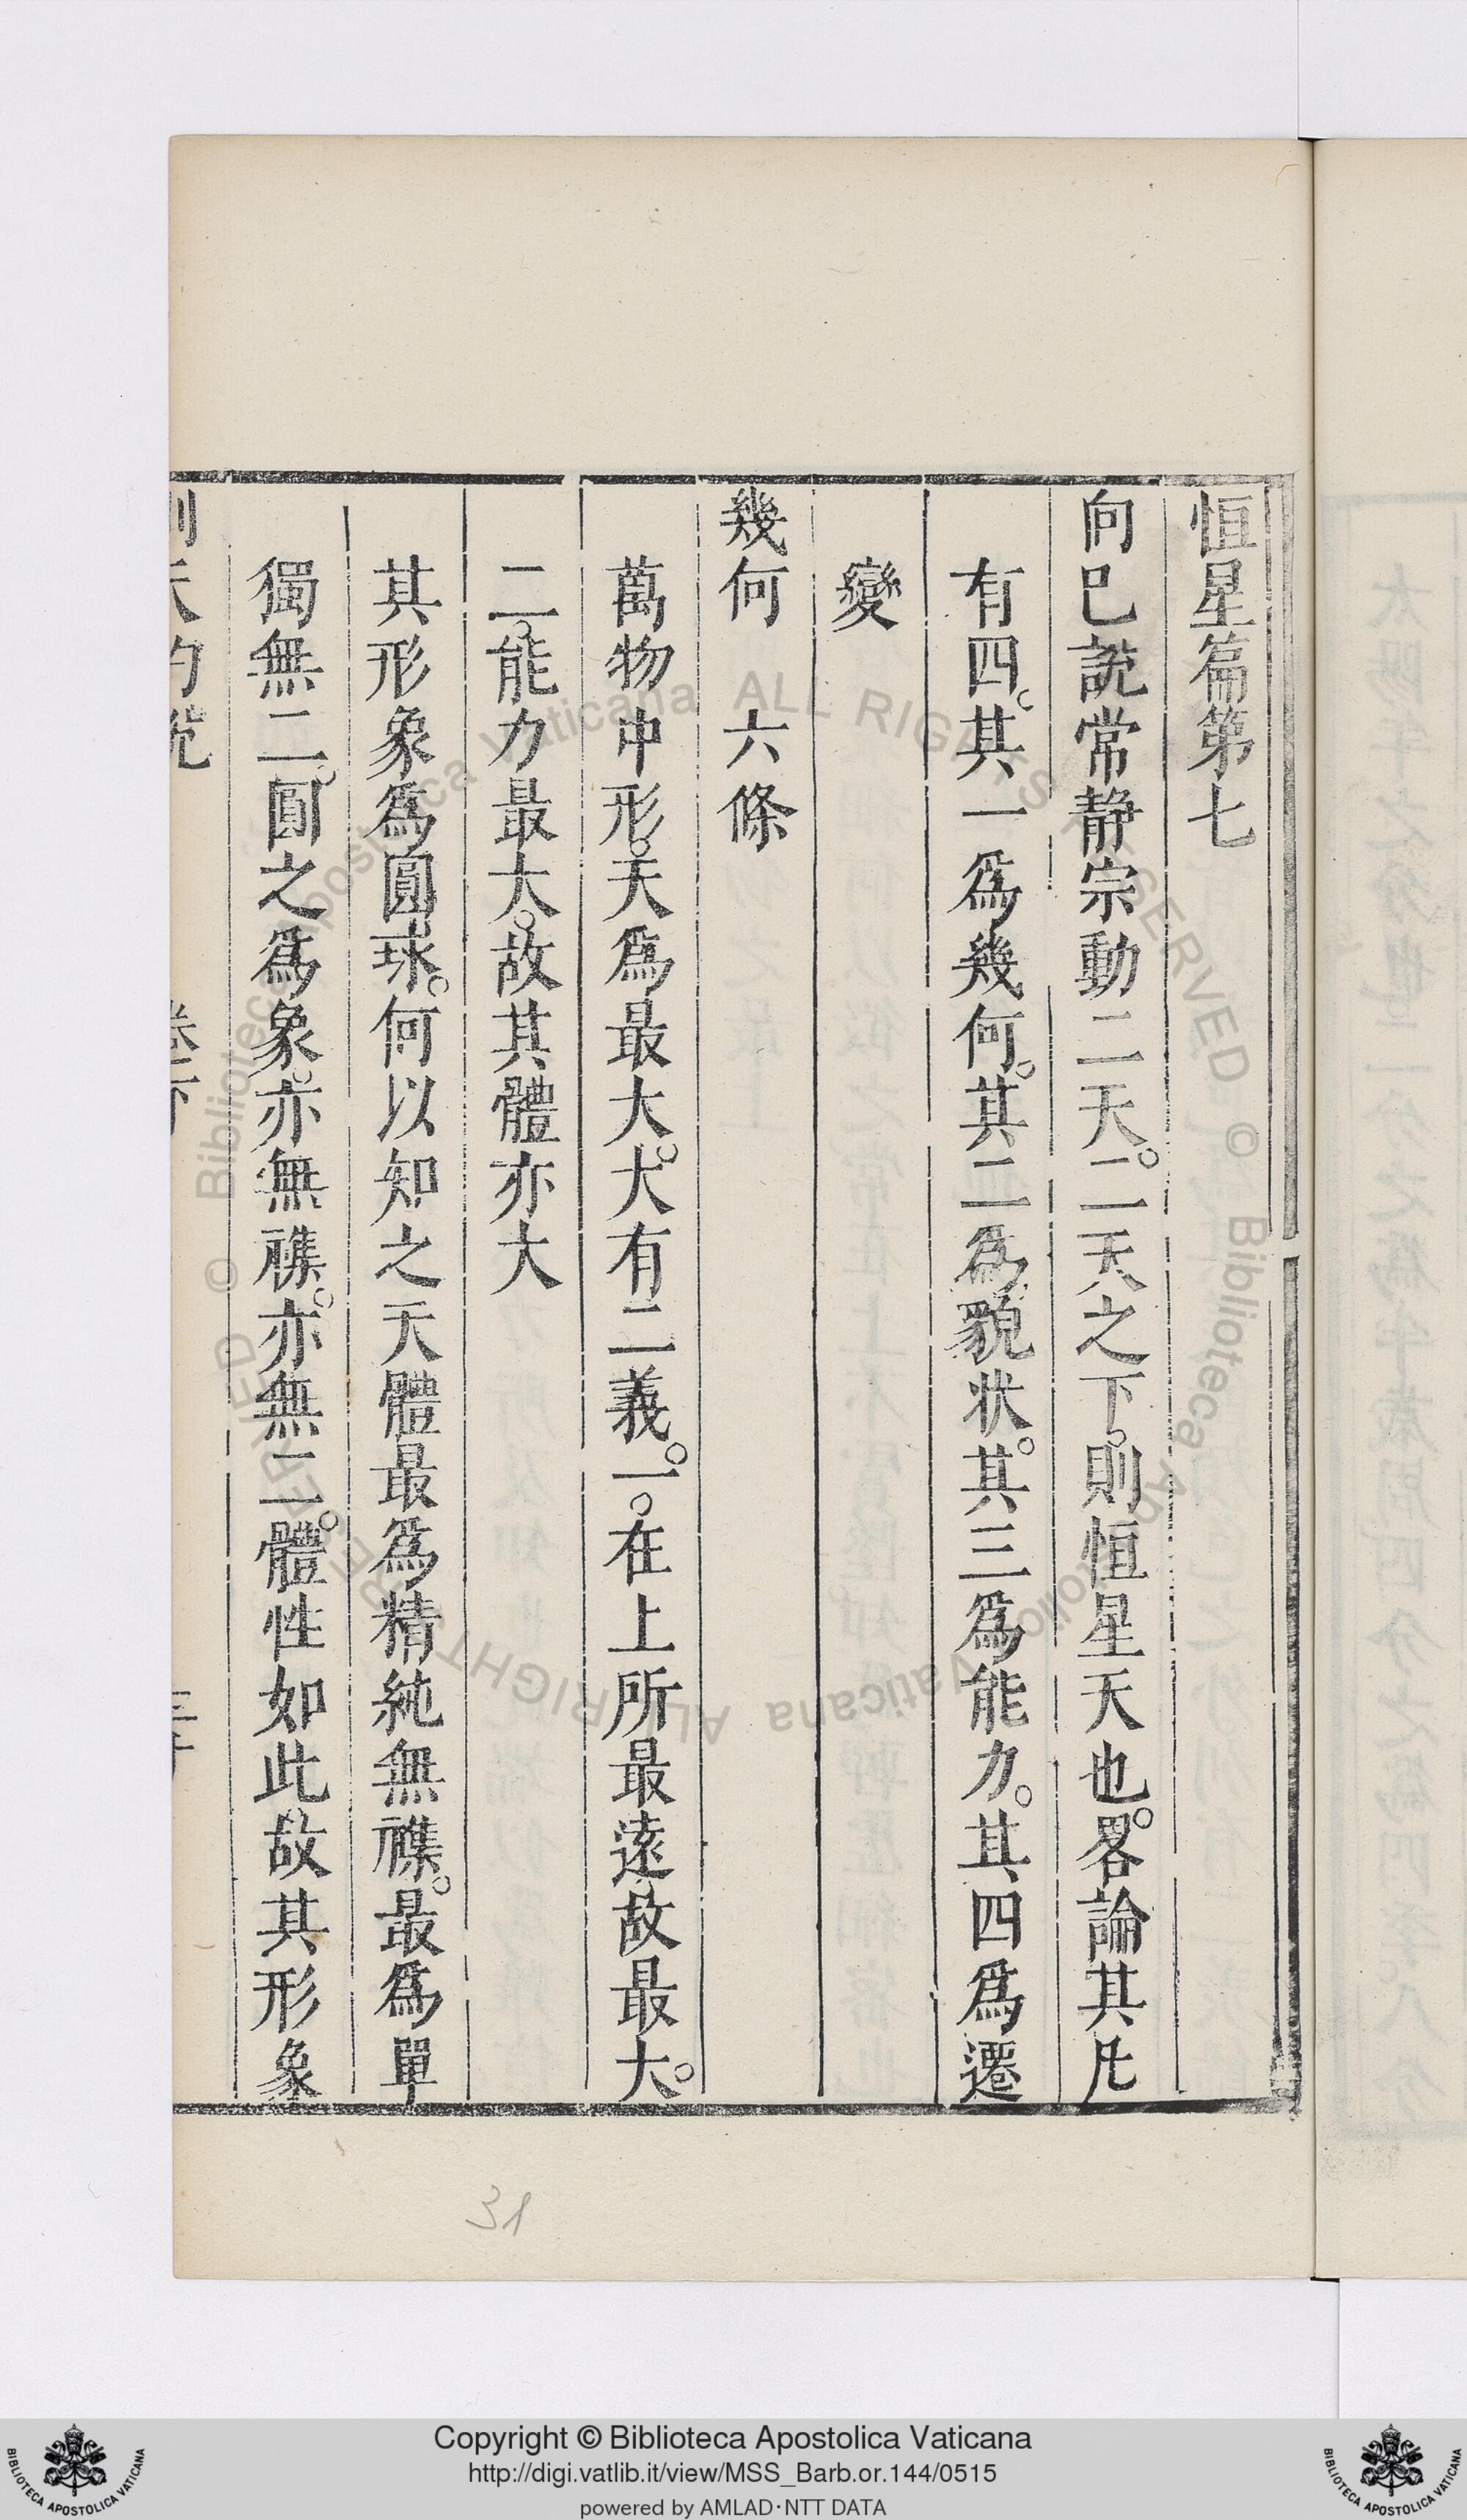 恒星篇第七
向已說常静宗動二天。二天之下。則恒星天也。畧論其凡
有四。其一爲幾何。其二爲貌状。其三爲能力。其四爲遷
變
幾何　六條
萬物中形。天爲最大。大有二義。一。在上所最遠。故最大。
二。能力最大。故其體亦大
其形象爲圓球。何以知之天體最爲精純無襍。最爲單
獨無二。圓之爲象。亦無襍。亦無二。體性如此。故其形象
31
Copyright © Biblioteca Apostolica Vaticana
http://digi.vatlib.it/view/MSS_Barb.or.144/0515
powered by AMLAD·NTT DATA
BIBLIOTECA APOSTOLICA VATICANA
BIBLIOTECA APOSTOLICA VATICANA
© Biblioteca Apostolica Vaticana ALL RIGHTS RESERVED
© Biblioteca Apostolica Vaticana ALL RIGHTS RESERVED